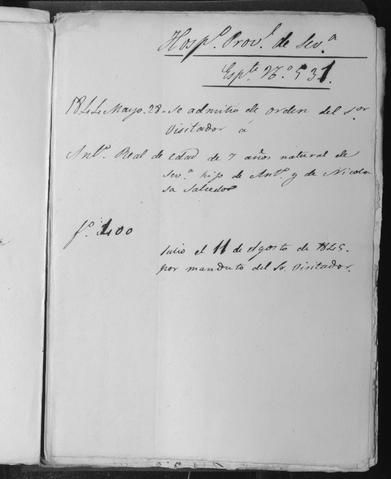 Hosp.l Prov.l de Sev.a
Esp.te N.o 531.
1844 Mayo. 28 - Se admitió de orden del S.or
Visitador a
Ant.o Real de edad de 7 años natural de
Sev.a hijo de Ant.o y de Nicola
sa Salcedo
f.o 400
Salió el 11 de Agosto de 1845.
por mandato del Sr. Visitador.